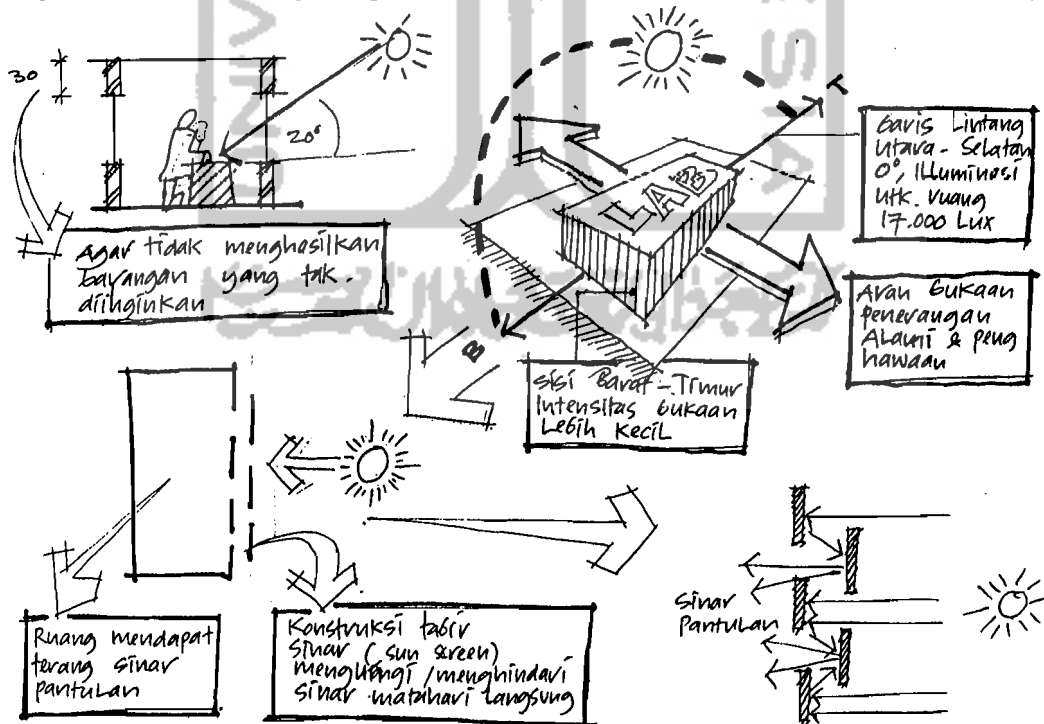 30
20°
Agar tidak menghasilkan
bayangan yang tak.
diinginkan
LAB
T
B
Garis Lintang
Utara - Selatan
0°, ILLuminasi
utk. ruang
17.000 Lux
Arah bukaan
penerangan
ALami & peng
hawaan
Sisi Barat - Timur
Intensitas bukaan
Lebih Kecil
Ruang mendapat
terang sinar
pantulan
Konstruksi tabir
Sinar (sun screen)
/menghindari
sinar matahari langsung
Sinar
Pantulan